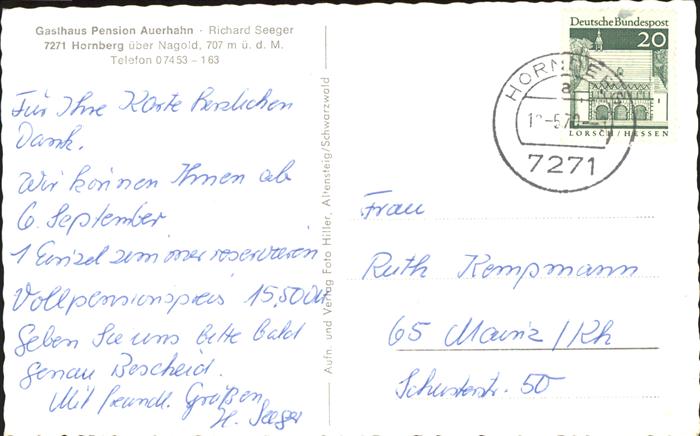 Gasthaus Pension Auerhahn · Richard Seeger
7271 Hornberg über Nagold, 707 m ü. d. M.
Telefon 07453-163
Für Ihre Karte herzlichen
Dank.
Wir können Ihnen ab
6. September
1 Einzelzimmer reservieren
Vollpensionspreis 15,50 DM
geben Sie uns bitte bald
genau Bescheid.
Mit freundl. Grüßen
H. Seeger
Aufn. und Verlag Foto Hiller, Altensteig/Schwarzwald
Deutsche Bundespost
20
LORSCH/HESSEN
HORNBERG
a
-5.70-
7271
Frau
Ruth Kempmann
65 Mainz/Rh
Schusterstr. 50